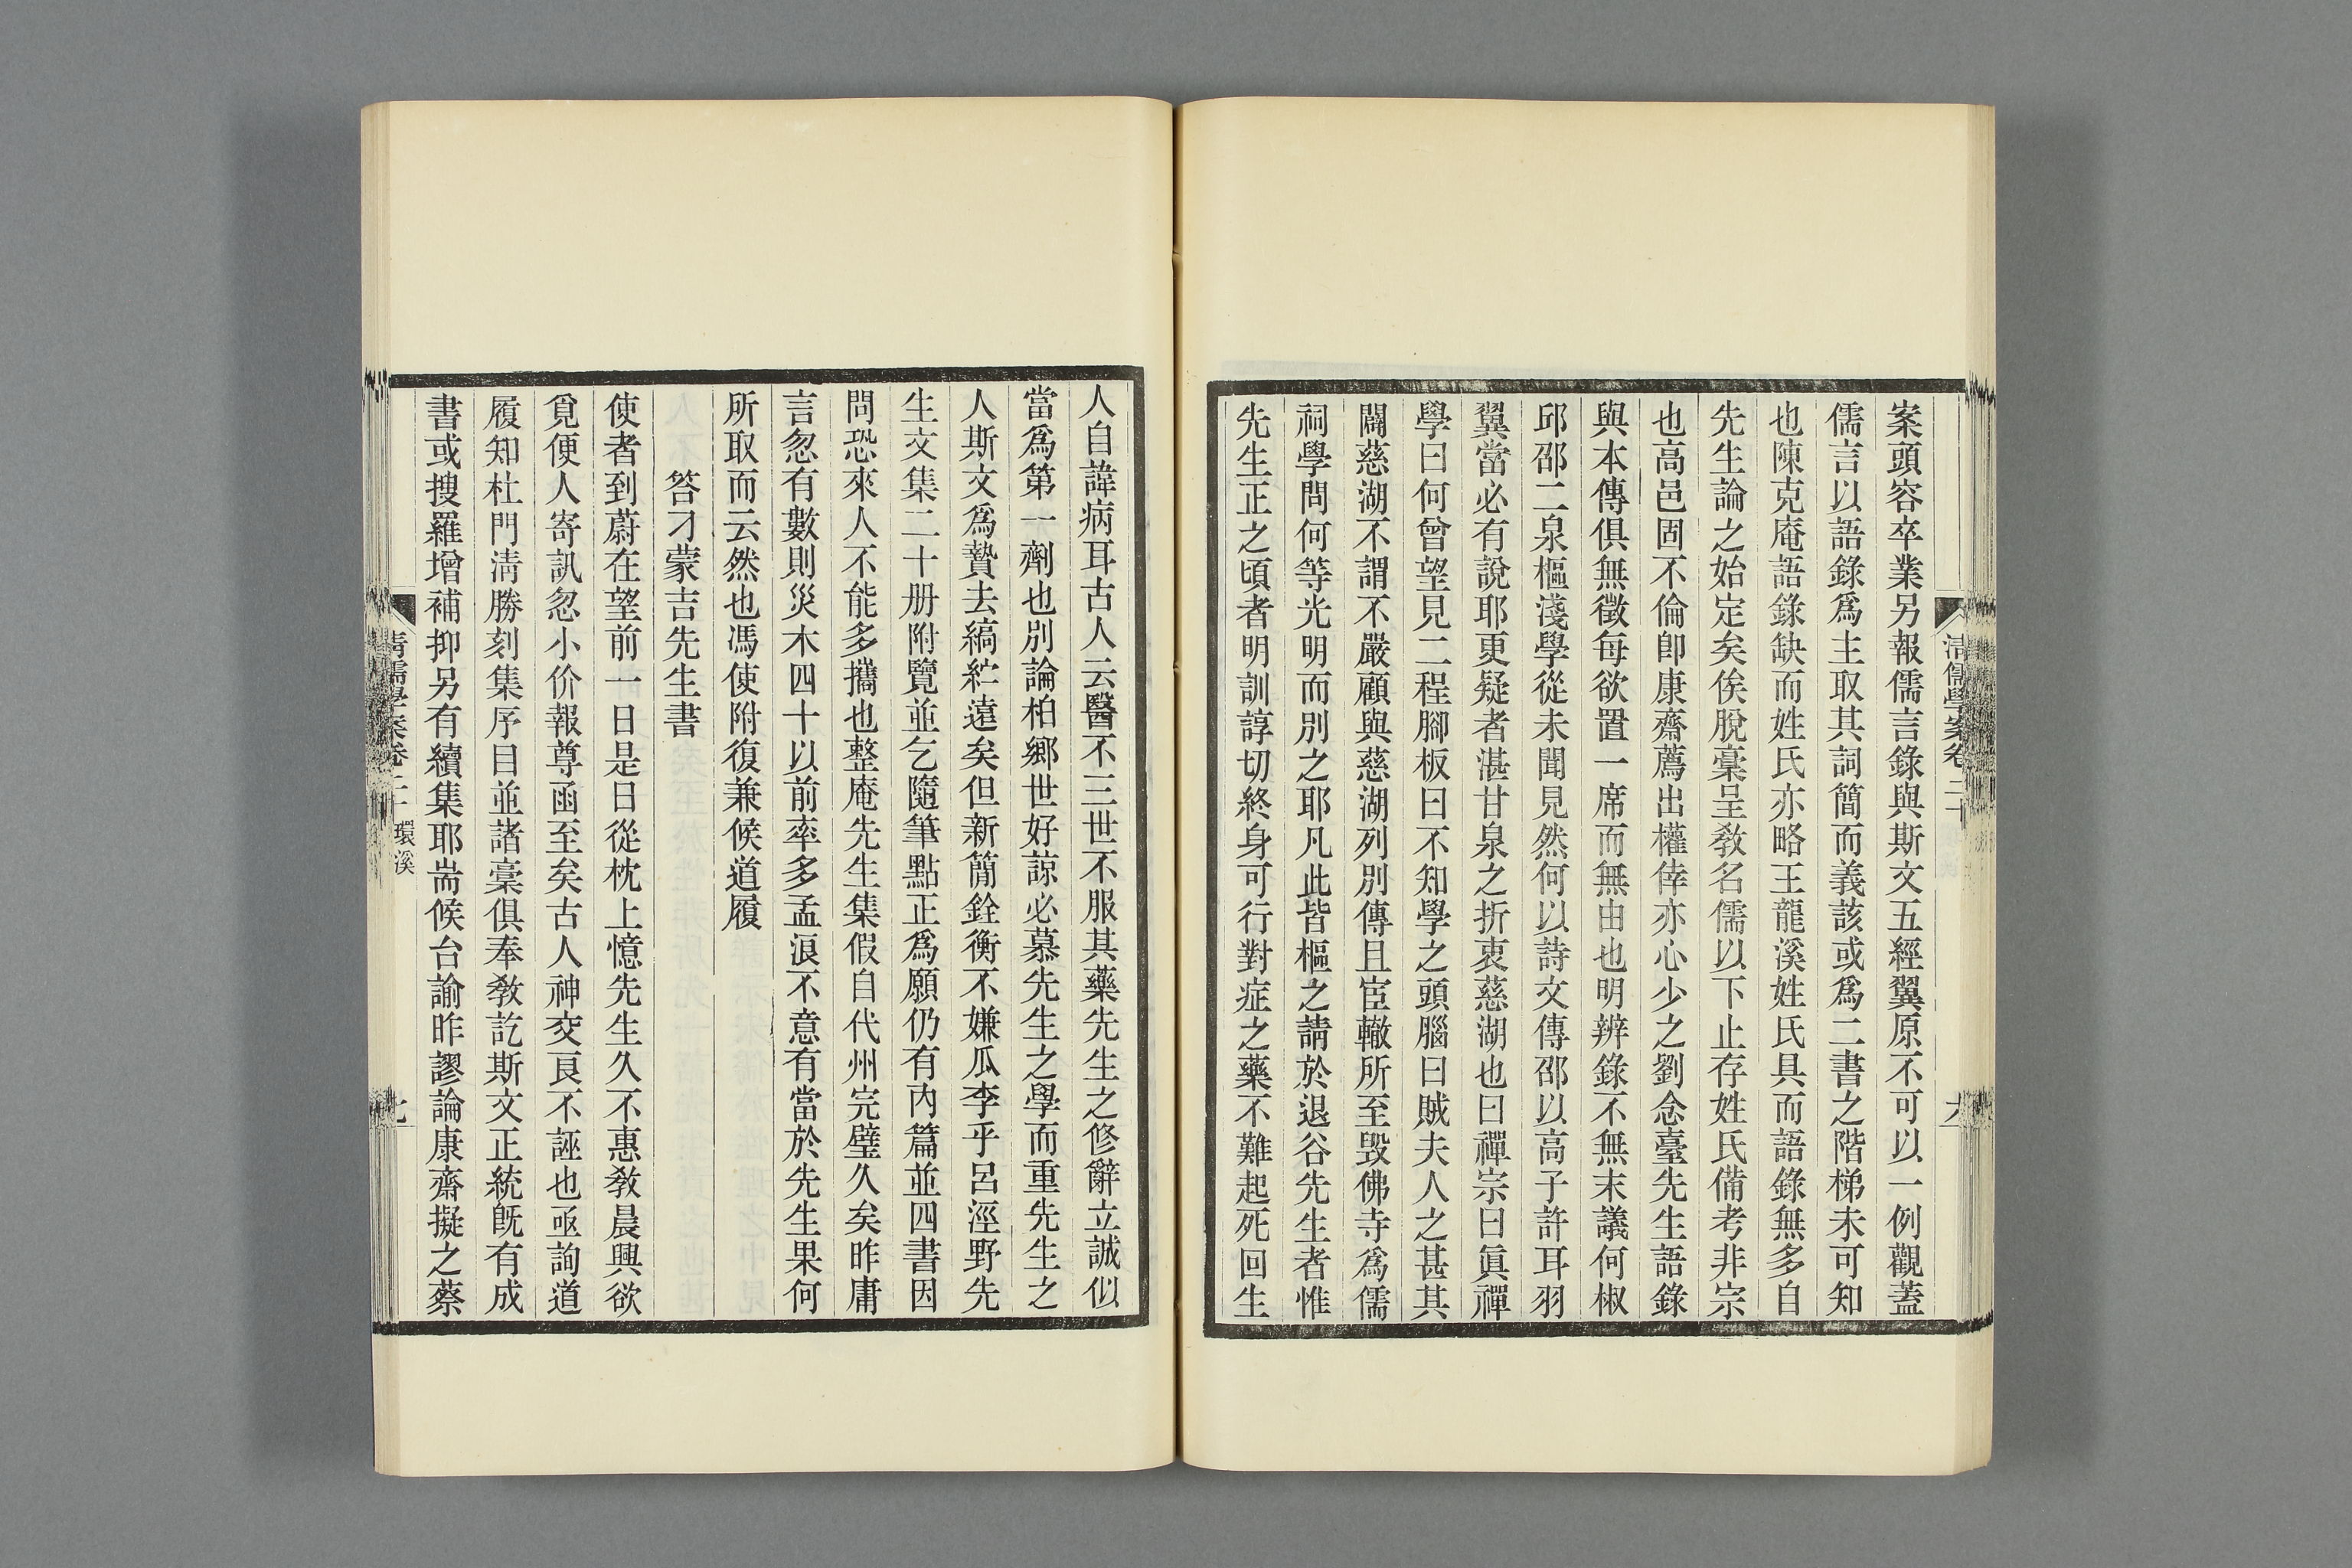 案頭容卒業另報儒言錄與斯文五經翼原不可以一例觀蓋
儒言以語錄爲主取其詞簡而義該或爲二書之階梯未可知
也陳克庵語錄缺而姓氏亦略王龍溪姓氏具而語錄無多自
先生論之始定矣俟脫稾呈敎名儒以下止存姓氏備考非宗
也高邑固不倫卽康齋薦出權倖亦心少之劉念臺先生語錄
與本傳俱無徵每欲置一席而無由也明辨錄不無末議何椒
邱邵二泉樞淺學從未聞見然何以詩文傳邵以高子許耳羽
翼當必有說耶更疑者湛甘泉之折衷慈湖也曰禪宗曰眞禪
學曰何曾望見二程腳板曰不知學之頭腦曰賊夫人之甚其
闢慈湖不謂不嚴顧與慈湖列別傳且宦轍所至毀佛寺爲儒
祠學問何等光明而別之耶凡此皆樞之請於退谷先生者惟
先生正之頃者明訓諄切終身可行對症之藥不難起死回生
清儒學案卷二十
人自諱病耳古人云醫不三世不服其藥先生之修辭立誠似
當爲第一劑也別論柏鄉世好諒必慕先生之學而重先生之
人斯文爲贄去縞紵遠矣但新簡銓衡不嫌瓜李乎呂涇野先
生文集二十册附覽並乞隨筆點正爲願仍有內篇並四書因
問恐來人不能多攜也整庵先生集假自代州完璧久矣昨庸
言忽有數則災木四十以前率多孟浪不意有當於先生果何
所取而云然也馮使附復兼候道履
答刁蒙吉先生書
使者到蔚在望前一日是日從枕上憶先生久不惠敎晨興欲
覓便人寄訊忽小价報尊函至矣古人神交良不誣也亟詢道
履知杜門淸勝刻集序目並諸稾俱奉敎訖斯文正統旣有成
書或搜羅增補抑另有續集耶耑候台諭昨謬論康齋擬之蔡
清儒學案卷二十 環溪 七